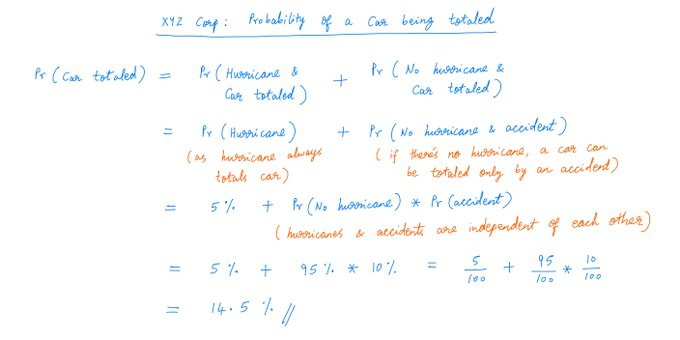 XYZ Corp: Probability of a Car being totaled
Pr (Car totaled) = Pr (Hurricane & Car totaled) + Pr (No hurricane & Car totaled)
= Pr (Hurricane) + Pr (No hurricane & accident)
(as hurricane always totals car) (if there's no hurricane, a car can be totaled only by an accident)
= 5% + Pr (No hurricane) * Pr (accident)
(hurricanes & accidents are independent of each other)
= 5% + 95% * 10% = 5/100 + 95/100 * 10/100
= 14.5% //